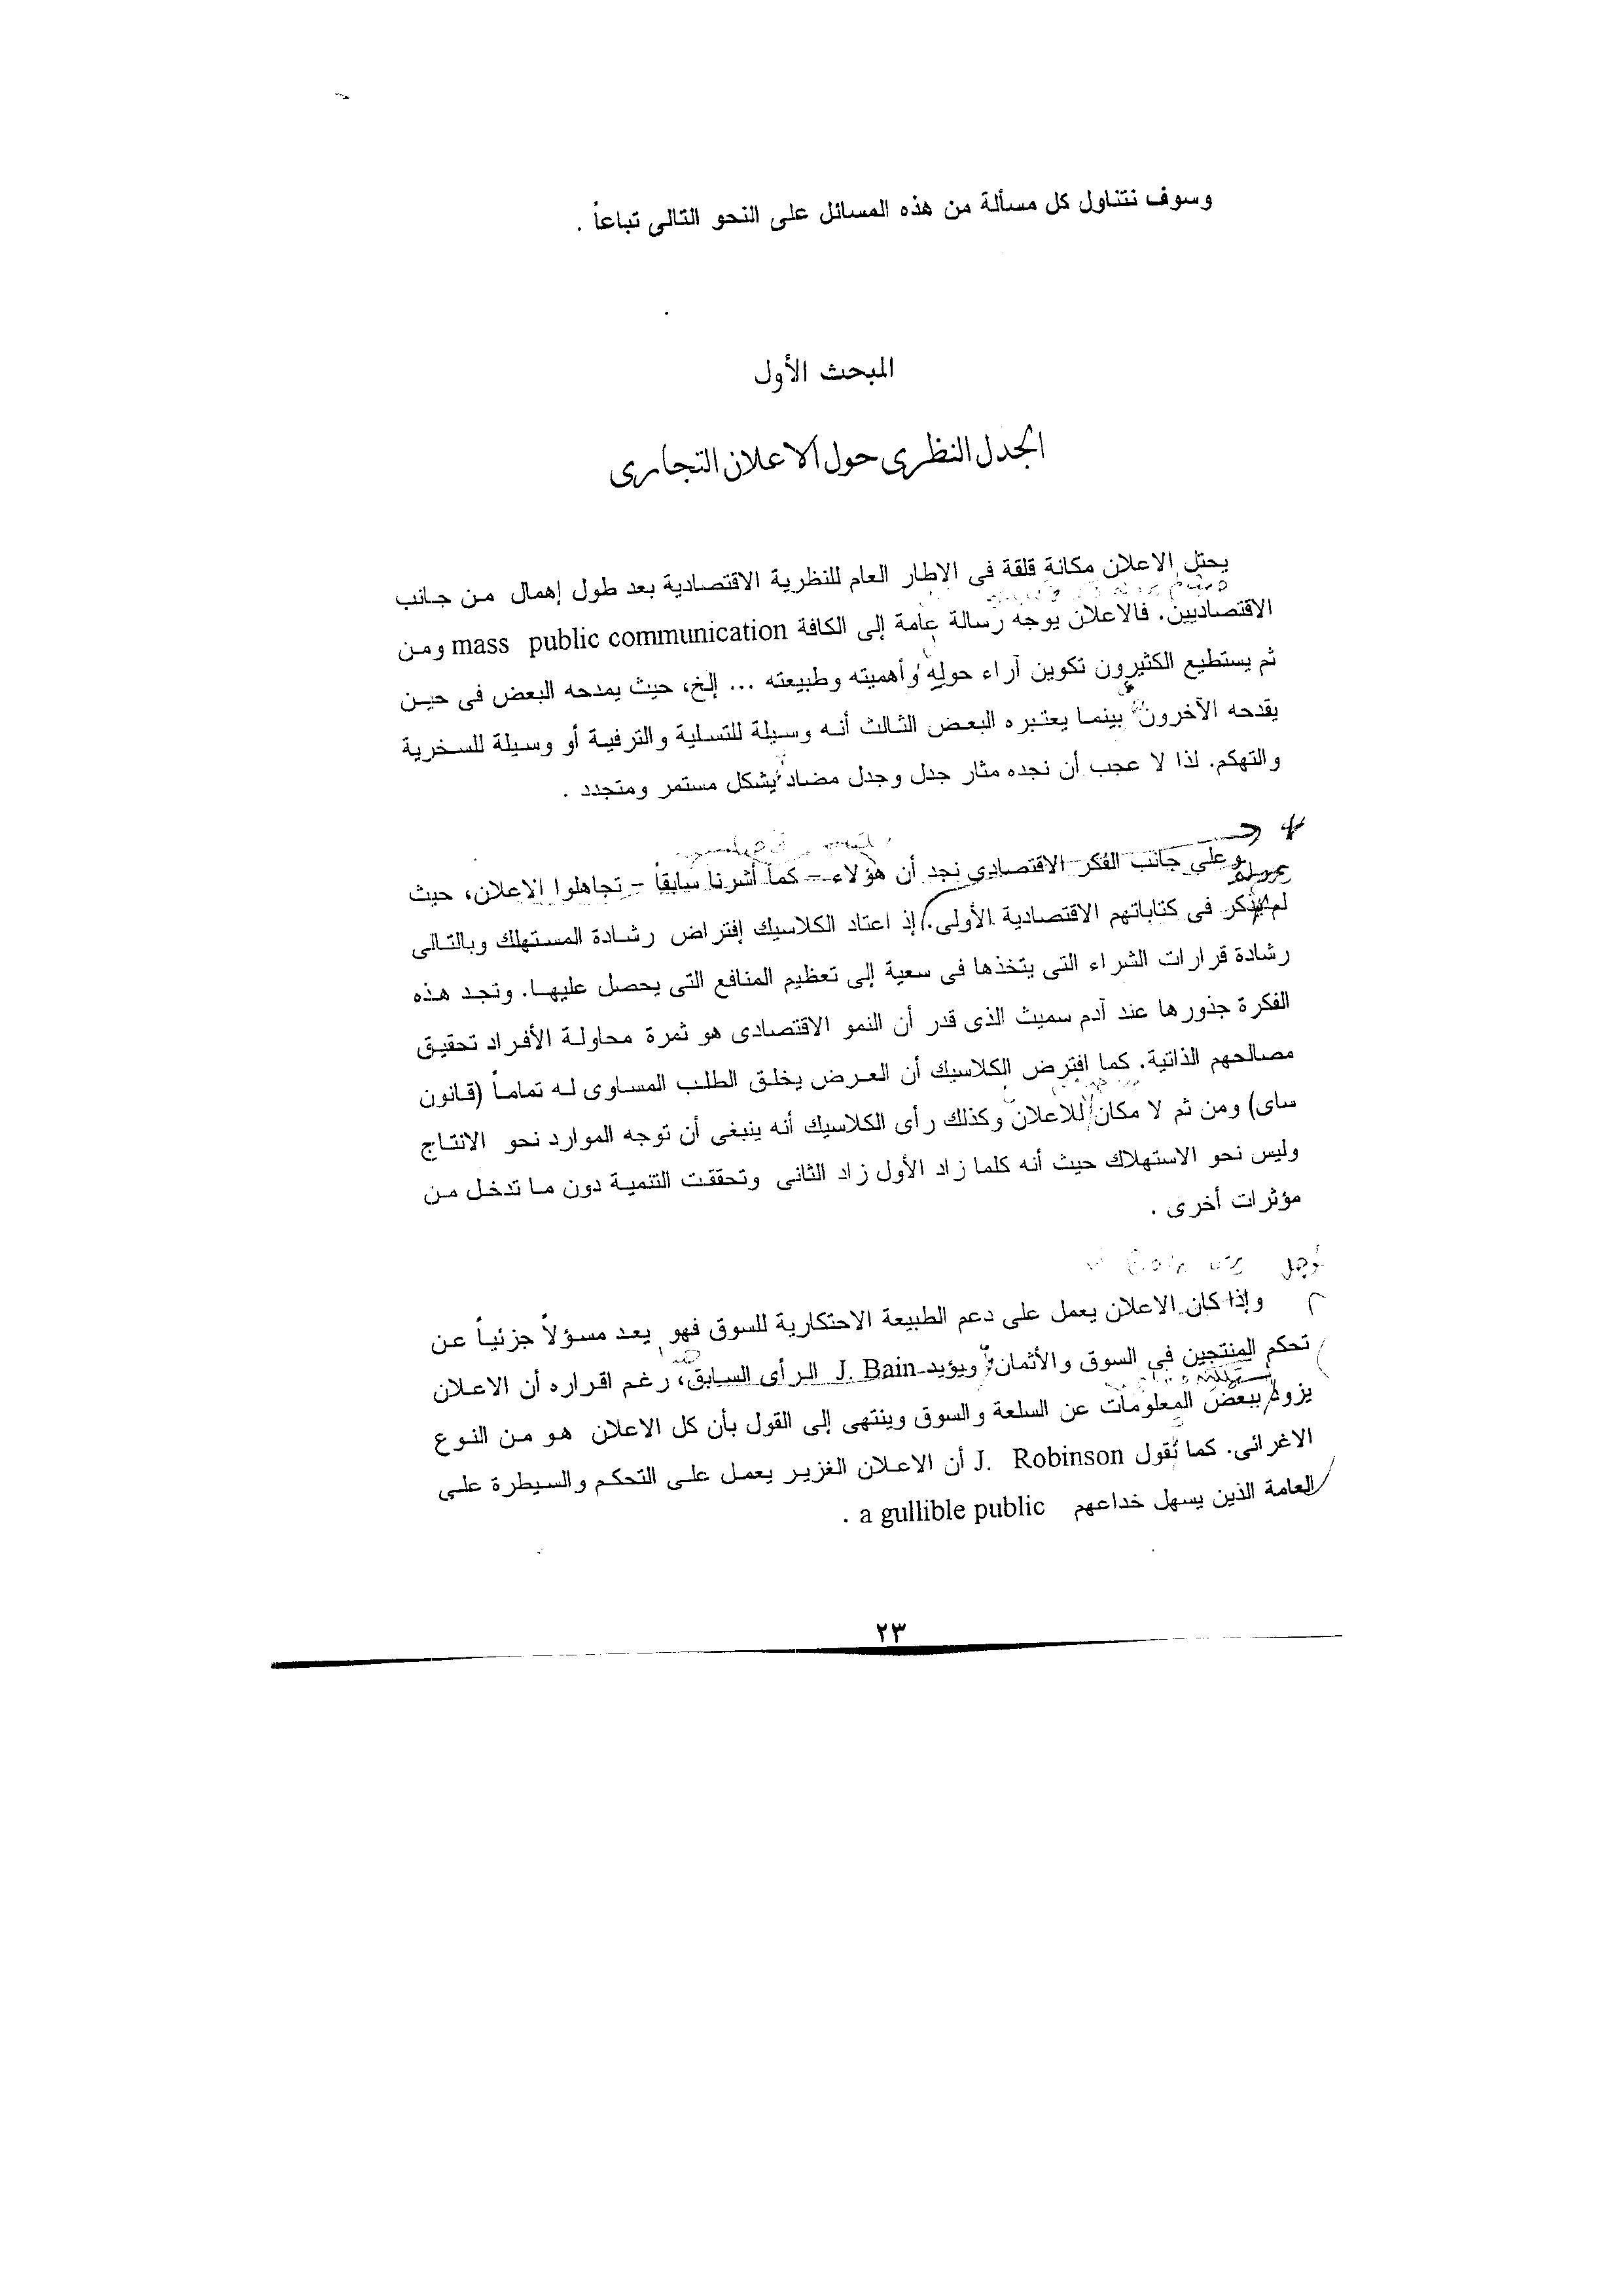 وسوف نتناول كل مسألة من هذه المسائل على النحو التالى تباعاً .
المبحث الأول
الجدل النظرى حول الاعلان التجارى
يحتل الاعلان مكانة قلقة فى الإطار العام للنظرية الاقتصادية بعد طول إهمال من جانب
الاقتصاديين. فالاعلان يوجه رسالة عامة إلى الكافة mass public communication ومن
ثم يستطيع الكثيرون تكوين آراء حوله وأهميته وطبيعته ... إلخ، حيث يمدحه البعض فى حين
يقدحه الآخرون بينما يعتبره البعض الثالث أنه وسيلة للتسلية والترفية أو وسيلة للسخرية
والتهكم. لذا لا عجب أن نجده مثار جدل وجدل مضاد يشكل مستمر ومتجدد .
وعلى جانب الفكر الاقتصادى نجد أن هؤلاء – كما أشرنا سابقاً – تجاهلوا الاعلان، حيث
لم يذكر فى كتاباتهم الاقتصادية الأولى. إذ اعتاد الكلاسيك إفتراض رشادة المستهلك وبالتالى
رشادة قرارات الشراء التى يتخذها فى سعية إلى تعظيم المنافع التى يحصل عليها. وتجد هذه
الفكرة جذورها عند آدم سميث الذى قدر أن النمو الاقتصادى هو ثمرة محاولة الأفراد تحقيق
مصالحهم الذاتية. كما افترض الكلاسيك أن العرض يخلق الطلب المساوى له تماماً (قانون
ساى) ومن ثم لا مكان للاعلان وكذلك رأى الكلاسيك أنه ينبغى أن توجه الموارد نحو الانتاج
وليس نحو الاستهلاك حيث أنه كلما زاد الأول زاد الثانى وتحققت التنمية دون ما تدخل من
مؤثرات أخرى .
وإذا كان الاعلان يعمل على دعم الطبيعة الاحتكارية للسوق فهو يعد مسؤلاً جزئياً عن
تحكم المنتجين فى السوق والأثمان ويؤيد J. Bain الرأى السابق، رغم اقراره أن الاعلان
يزود ببعض المعلومات عن السلعة والسوق وينتهى إلى القول بأن كل الاعلان هو من النوع
الاغرائى. كما تقول J. Robinson أن الاعلان الغزير يعمل على التحكم والسيطرة على
العامة الذين يسهل خداعهم a gullible public .
٢٣